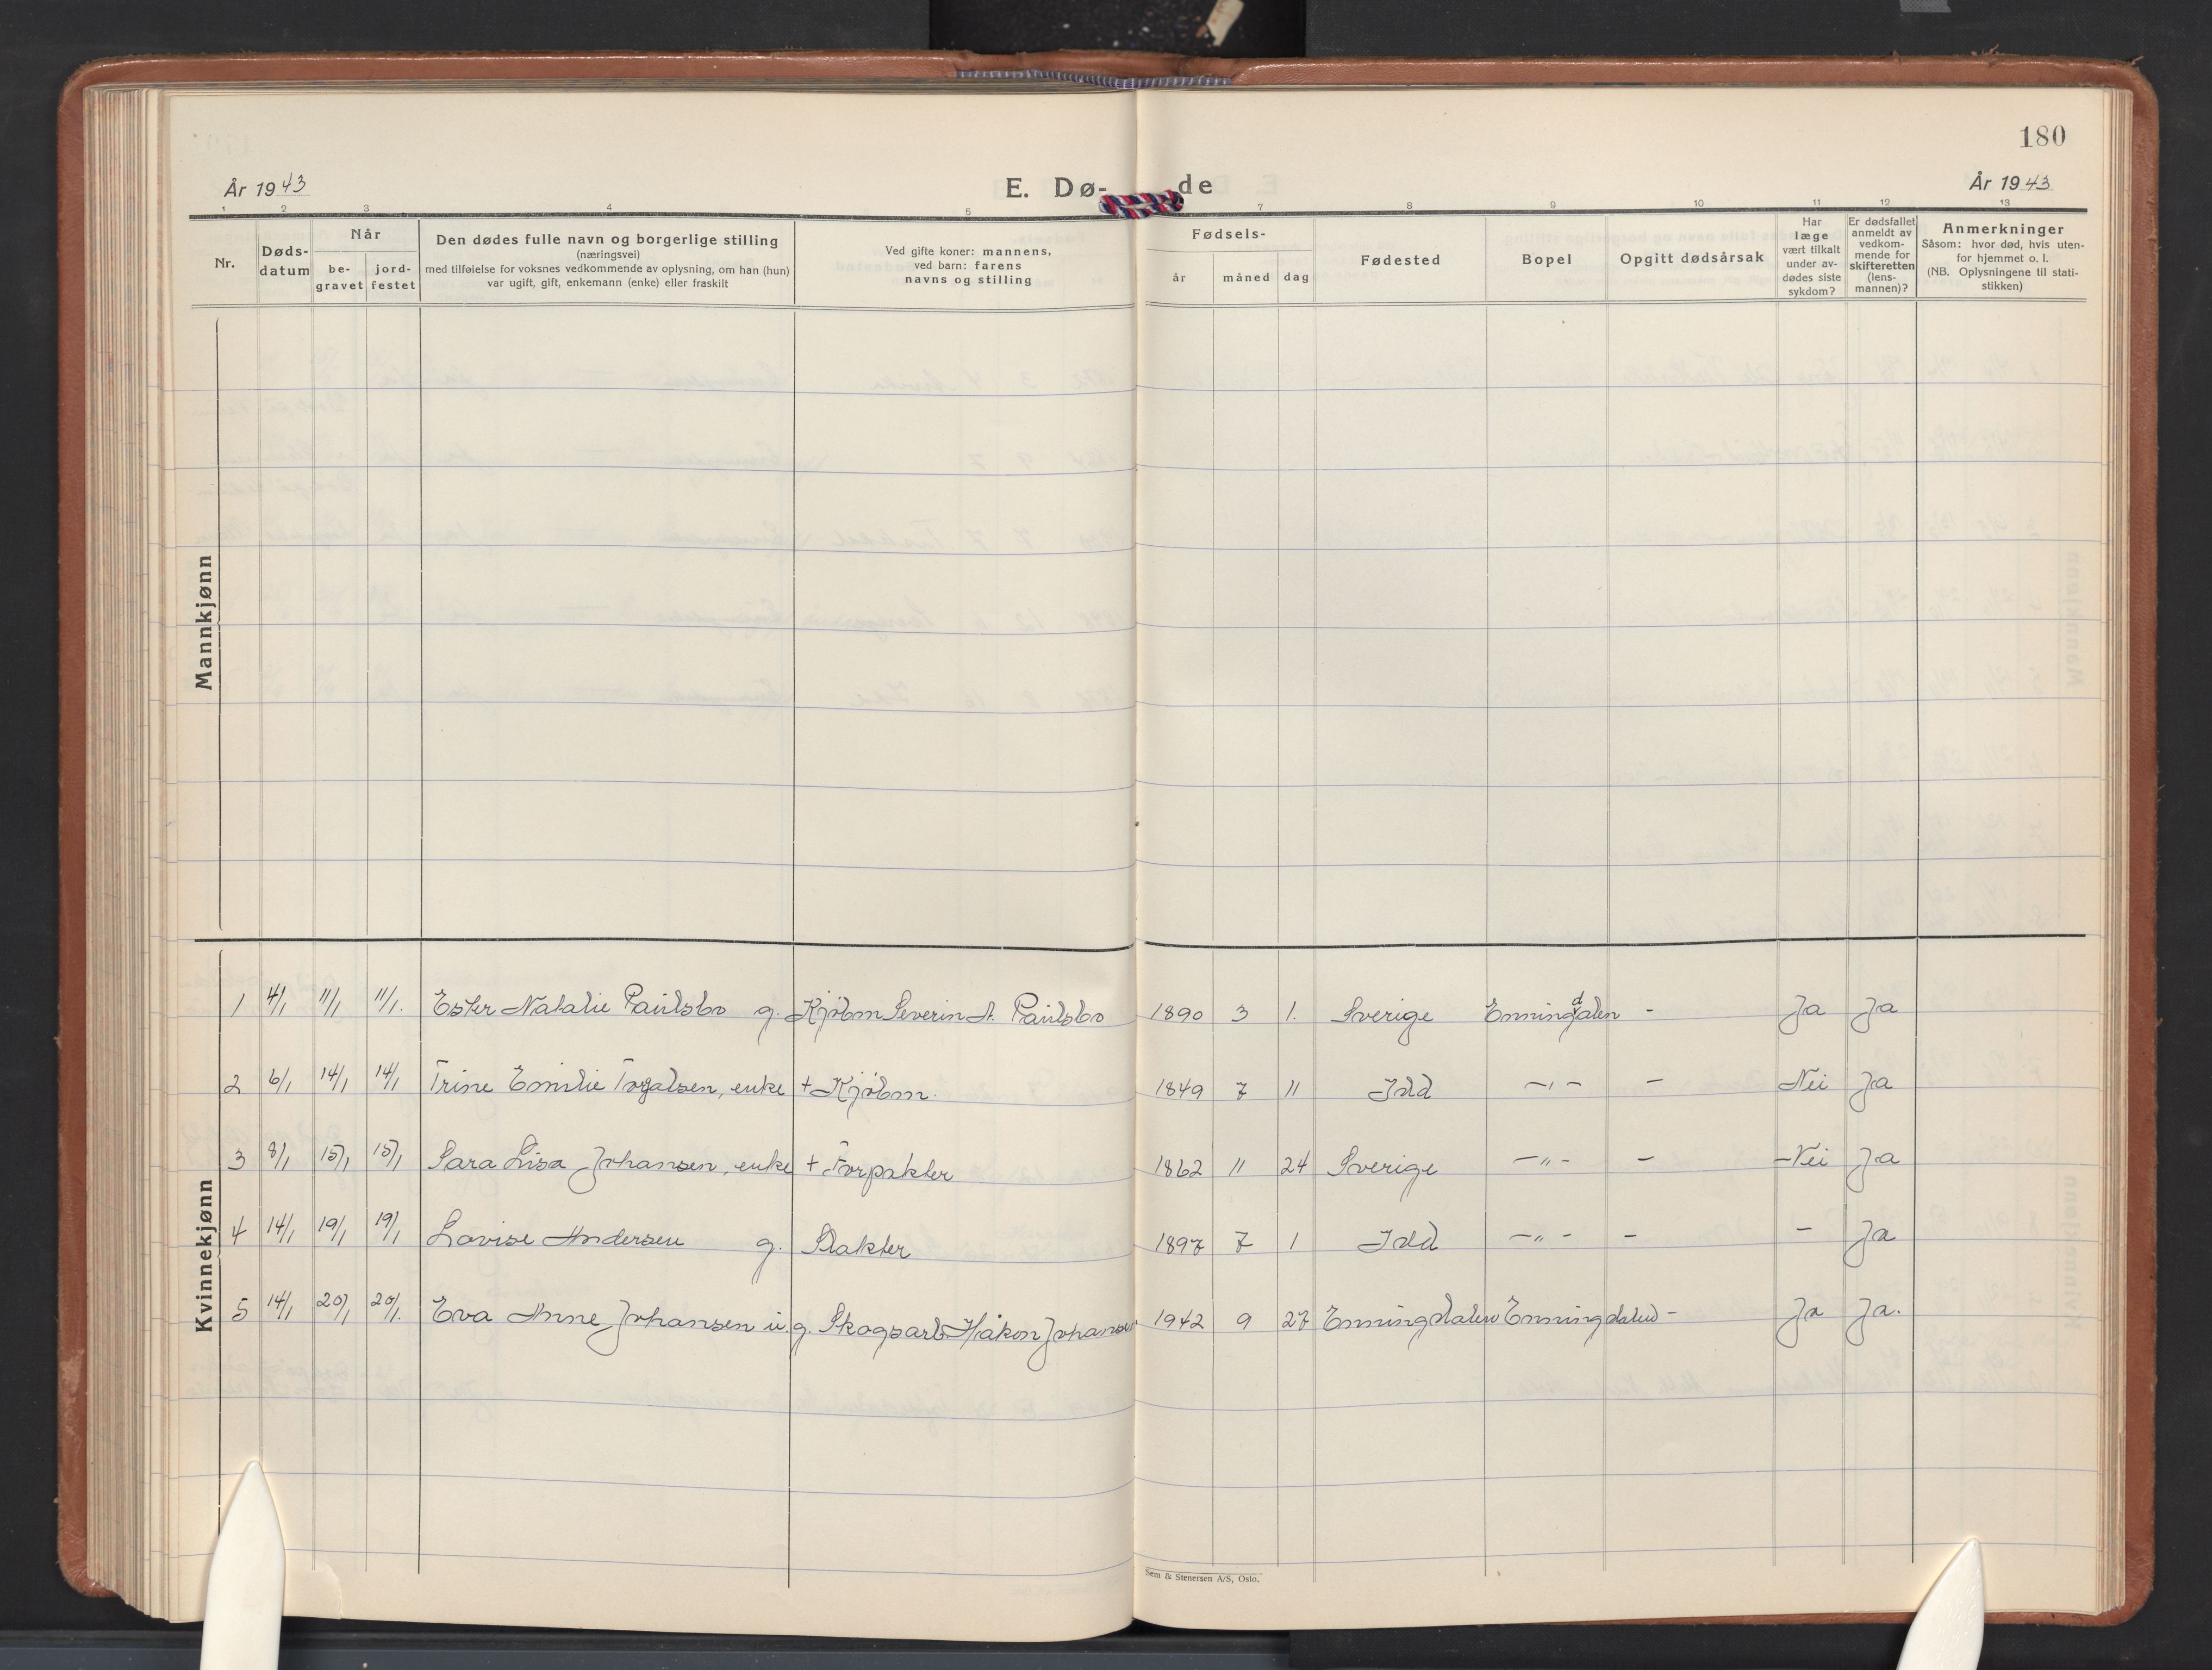 180
År 1943
E. Dø- de
År 1943
1 2 3 4 5 7 8 9 10 11 12 13
Nr.
Døds-
datum
Når
be-
gravet
jord-
festet
Den dødes fulle navn og borgerlige stilling
(næringsvei)
med tilføielse for voksnes vedkommende av oplysning, om han (hun)
var ugift, gift, enkemann (enke) eller fraskilt
Ved gifte koner: mannens,
ved barn: farens
navns og stilling
Fødsels-
år måned dag
Fødested
Bopel
Opgitt dødsårsak
Har
læge
vært tilkalt
under av-
dødes siste
sykdom?
Er dødsfallet
anmeldt av
vedkom-
mende for
skifteretten
(lens-
mannen)?
Anmerkninger
Såsom: hvor død, hvis uten-
for hjemmet o. l.
(NB. Oplysningene til stati-
stikken)
Mannkjønn
Kvinnekjønn
1 4/1 11/1 11/1. Ester Natalie Paulsbo g. Kjøbm Severin A. Paulsbo 1890 3 1. Sverige Enningdalen - Ja Ja
2 6/1 14/1 14/1 Trine Emilie Torgalsen, enke + Kjøbm. 1849 7 11 Idd -"- - Nei Ja
3 8/1 15/1 15/1 Sara Lisa Johansen, enke + Forpakter 1862 11 24 Sverige -"- - Nei Ja
4 14/1 19/1 19/1 Lovise Andersen g. Slakter 1897 7 1 Idd -"- - - Ja
5 14/1 20/1 20/1. Eva Anne Johansen u.g. Skogsarb Håkon Johansen 1942 9 27 Enningdalen Enningdalen - Ja Ja.
Sem & Stenersen A/S, Oslo.